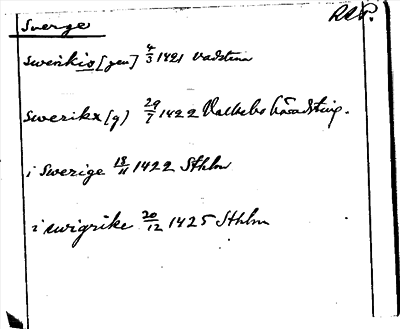 RAP.
Sverge
swerikis [gen] 4/3 1421 Vadstena
swerikx (g) 29/7 1422 Valkebo häradsting.
i Swerige 18/11 1422 Sthlm
i swigrike 20/12 1425 Sthlm